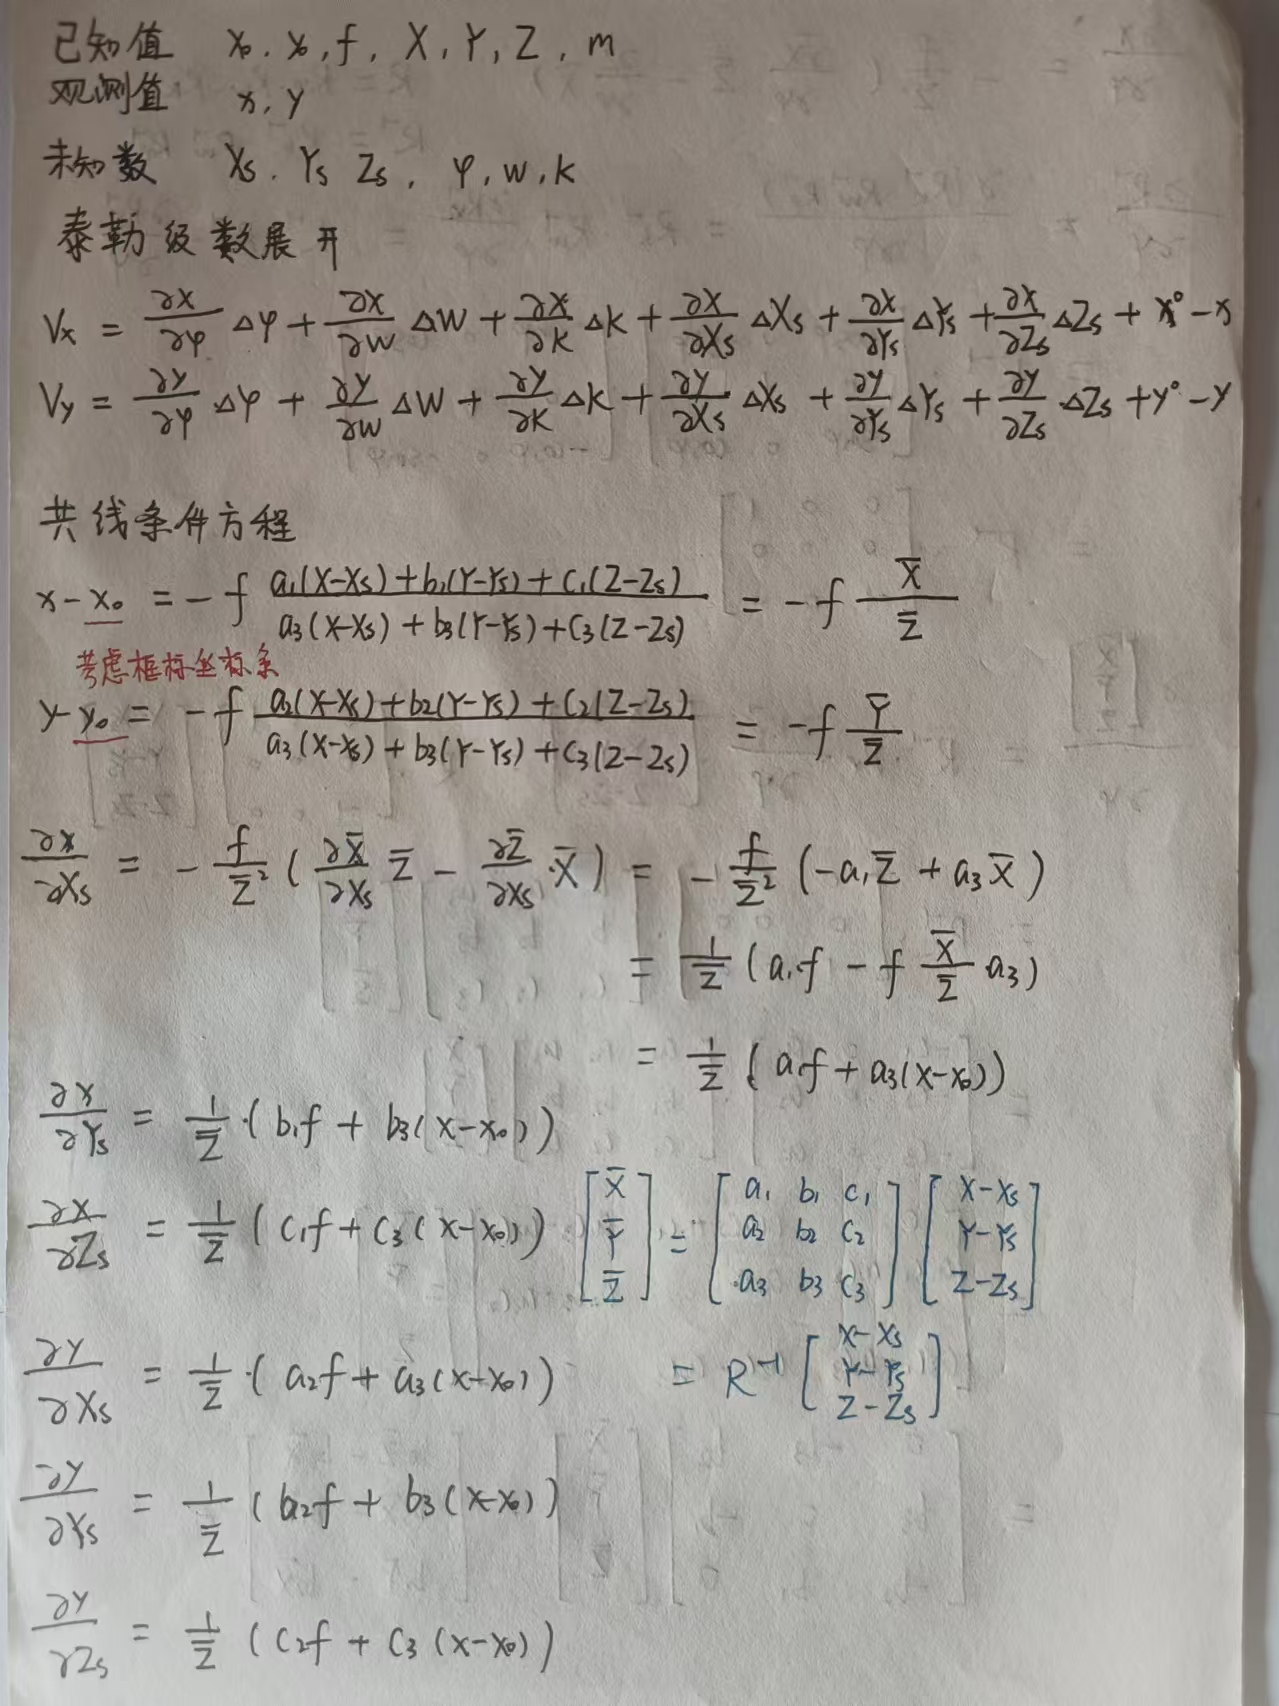 已知值 x₀, y₀, f, X, Y, Z, m
观测值 x, y
未知数 Xs, Ys Zs, φ, w, k
泰勒级数展开
Vx = ∂x/∂φ Δφ + ∂x/∂w Δw + ∂x/∂k Δk + ∂x/∂Xs ΔXs + ∂x/∂Ys ΔYs + ∂x/∂Zs ΔZs + x° - x
Vy = ∂y/∂φ Δφ + ∂y/∂w Δw + ∂y/∂k Δk + ∂y/∂Xs ΔXs + ∂y/∂Ys ΔYs + ∂y/∂Zs ΔZs + y° - y
共线条件方程
x - x₀ = -f (a₁(X-Xs)+b₁(Y-Ys)+c₁(Z-Zs))/(a₃(X-Xs)+b₃(Y-Ys)+c₃(Z-Zs)) = -f X̄/Z̄
考虑框标坐标系
y - y₀ = -f (a₂(X-Xs)+b₂(Y-Ys)+c₂(Z-Zs))/(a₃(X-Xs)+b₃(Y-Ys)+c₃(Z-Zs)) = -f Ȳ/Z̄
∂x/∂Xs = -f/Z̄² (∂X̄/∂Xs Z̄ - ∂Z̄/∂Xs · X̄) = -f/Z̄² (-a₁Z̄ + a₃X̄)
= 1/Z̄ (a₁f - f X̄/Z̄ a₃)
= 1/Z̄ (a₁f + a₃(x-x₀))
∂x/∂Ys = 1/Z̄ · (b₁f + b₃(x-x₀))
∂x/∂Zs = 1/Z̄ (c₁f + c₃(x-x₀))
[X̄ Ȳ Z̄] = [a₁ b₁ c₁ a₂ b₂ c₂ a₃ b₃ c₃] [X-Xs Y-Ys Z-Zs]
= R⁻¹ [X-Xs Y-Ys Z-Zs]
∂y/∂Xs = 1/Z̄ · (a₂f + a₃(x-x₀))
∂y/∂Ys = 1/Z̄ (b₂f + b₃(x-x₀))
∂y/∂Zs = 1/Z̄ (c₂f + c₃(x-x₀))